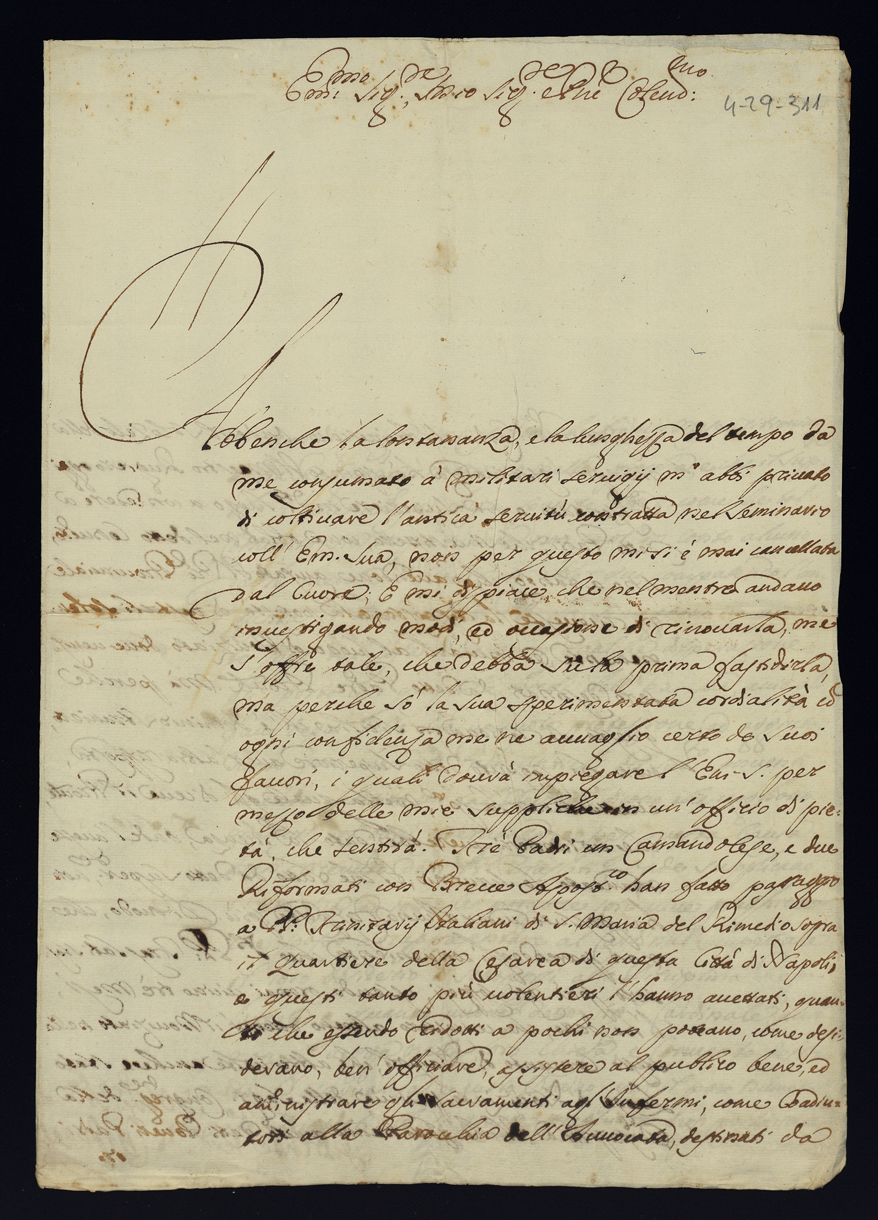 Em.mo Sig.re, Sig.re e Pne Colend:mo
4-29-311
Abbenche la lontananza, e la lunghezza del tempo da
me consumato à militari servigij m' abbi privato
di coltivare l'antica servitù contratta nel Seminario
coll' Em. Sua, non per questo mi si è mai cancellata
dal Cuore; E mi dispiace, che nel mentre andavo
investigando modi, ed occasione di rinovarla, me
s'offri tale, che debba sù la prima fastidirla,
ma perche sò la sua sperimentata cordialità cõ
ogni confidenza me ne avvaglio certo de suoi
favori, i quali dovrà impiegare l' Em. S. per
mezzo delle mie suppliche in un' officio di pie-
tà, che sentirà. Trè Padri un Camandolese, e due
Riformati con Breve Apost.co han fatto passaggio
a PP. Trinitarij Italiani di S. Maria del Rimedio sopra
il Quartiere della Cesarea di questa Città di Napoli,
e questi tanto più volentieri l'hanno accettati, quan-
to che essendo ridotti a pochi non poteano, come desi-
deravano, ben' officiare, assistere al publico bene, ed
aministrare gli Sacramenti agl' Infermi, come Coadiu-
tori alla Parocchia dell' Avvocata, destinati da